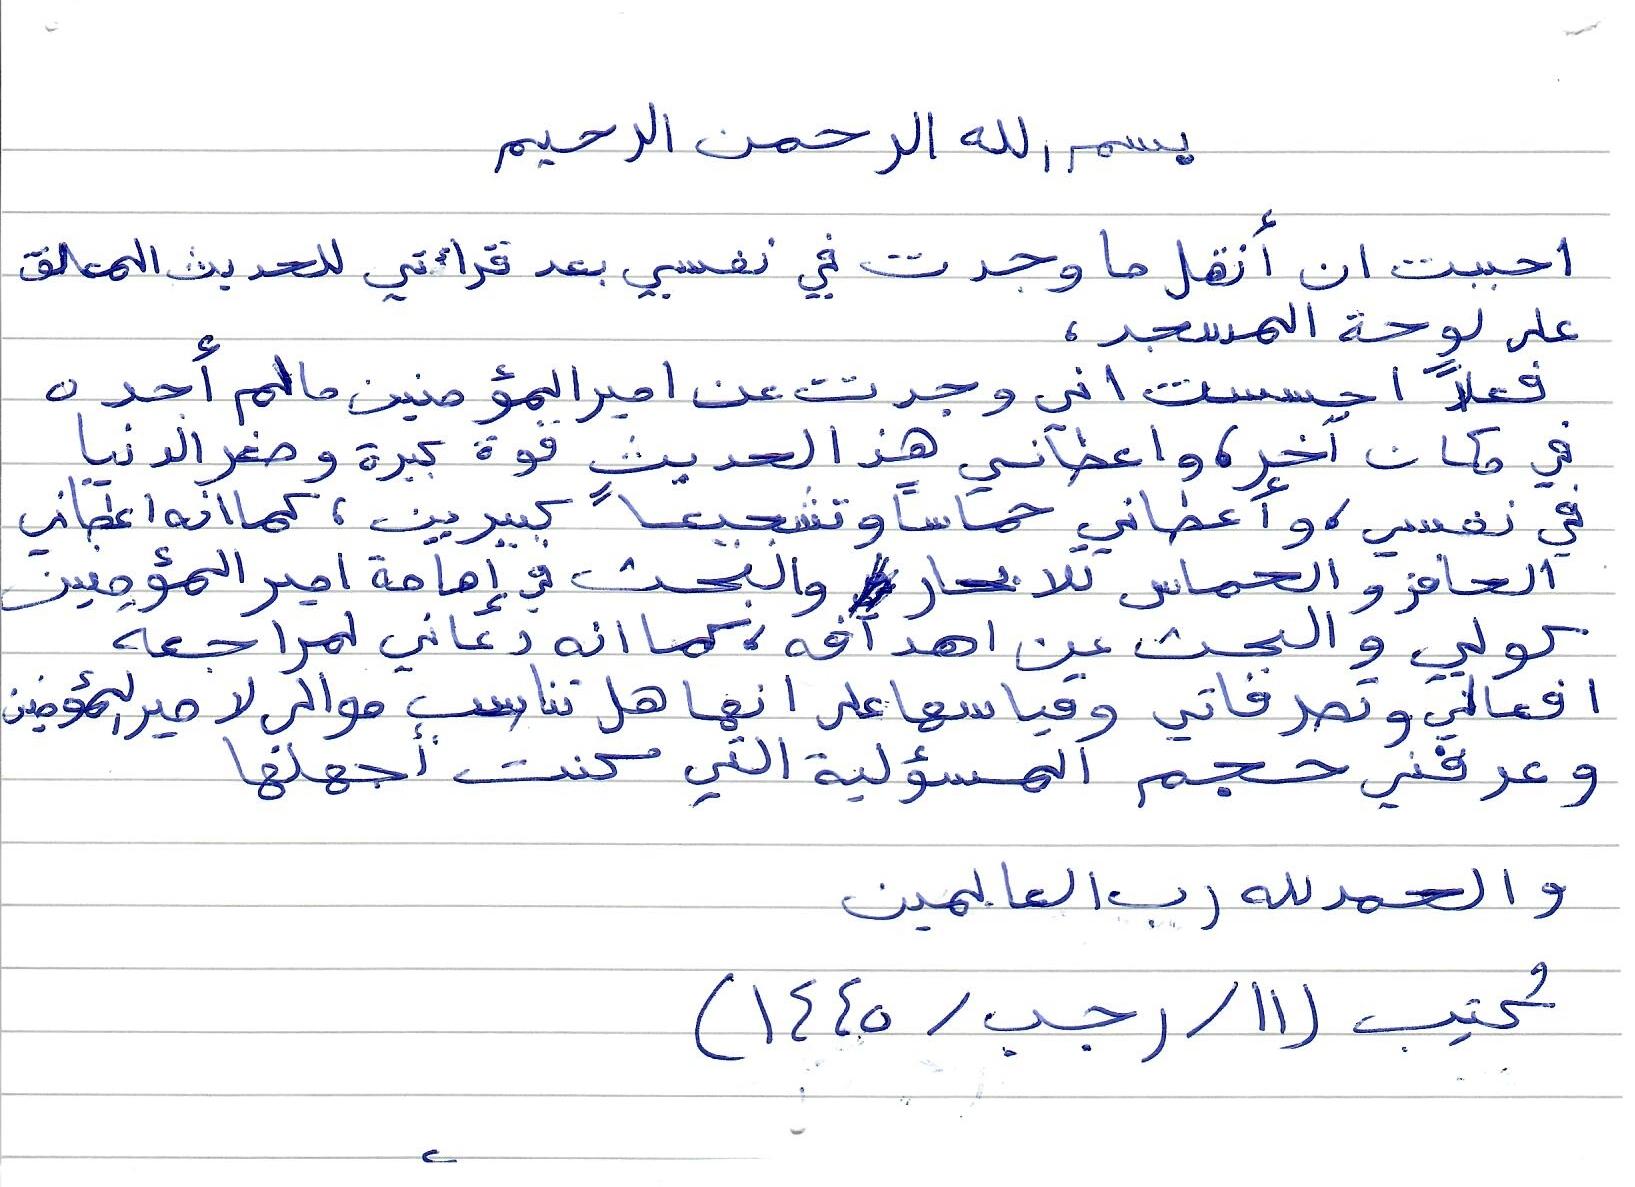 بسم الله الرحمن الرحيم
احببت ان أنقل ما وجدت في نفسي بعد قرائتي للحديث المعلق
على لوحة المسجد ،
فعلاً احسست اني وجدت عن امير المؤمنين مالم أجده
في مكان آخر ، واعطاني هذ الحديث قوة كبيرة وصغر الدنيا
في نفسي ، وأعطاني حماساً وتشجيعاً كبيرين ، كما انه اعطاني
الحافز والحماس للابحار والبحث في إمامة امير المؤمنين
كولي والبحث عن اهدافه ، كما انه دعاني لمراجعه
افعالي وتصرفاتي وقياسها على انها هل تناسب موالي لامير المؤمنين
وعرفني حجم المسؤلية التي كنت أجهلها
والحمد لله رب العالمين
كُتِب (١١/رجب/١٤٤٥)